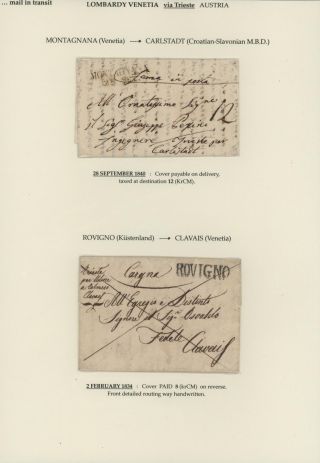 ... mail in transit
LOMBARDY VENETIA via Trieste AUSTRIA
MONTAGNANA (Venetia) → CARLSTADT (Croatian-Slavonian M.B.D.)
ferma in posta
All' Ornatissimo Sigre
il Sigr Giuseppe
12
Ingegnere Trieste per
Carlstadt
28 SEPTEMBER 1840 : Cover payable on delivery,
taxed at destination 12 (KrCM).
ROVIGNO (Küstenland) → CLAVAIS (Venetia)
Trieste
per Udine
a Tolmezzo
Clavais
Cargna
ROVIGNO
All' Egregio e Distinto
Signore il Sigr Osvaldo
Fedele Clavais
2 FEBRUARY 1834 : Cover PAID 8 (krCM) on reverse.
Front detailed routing way handwritten.